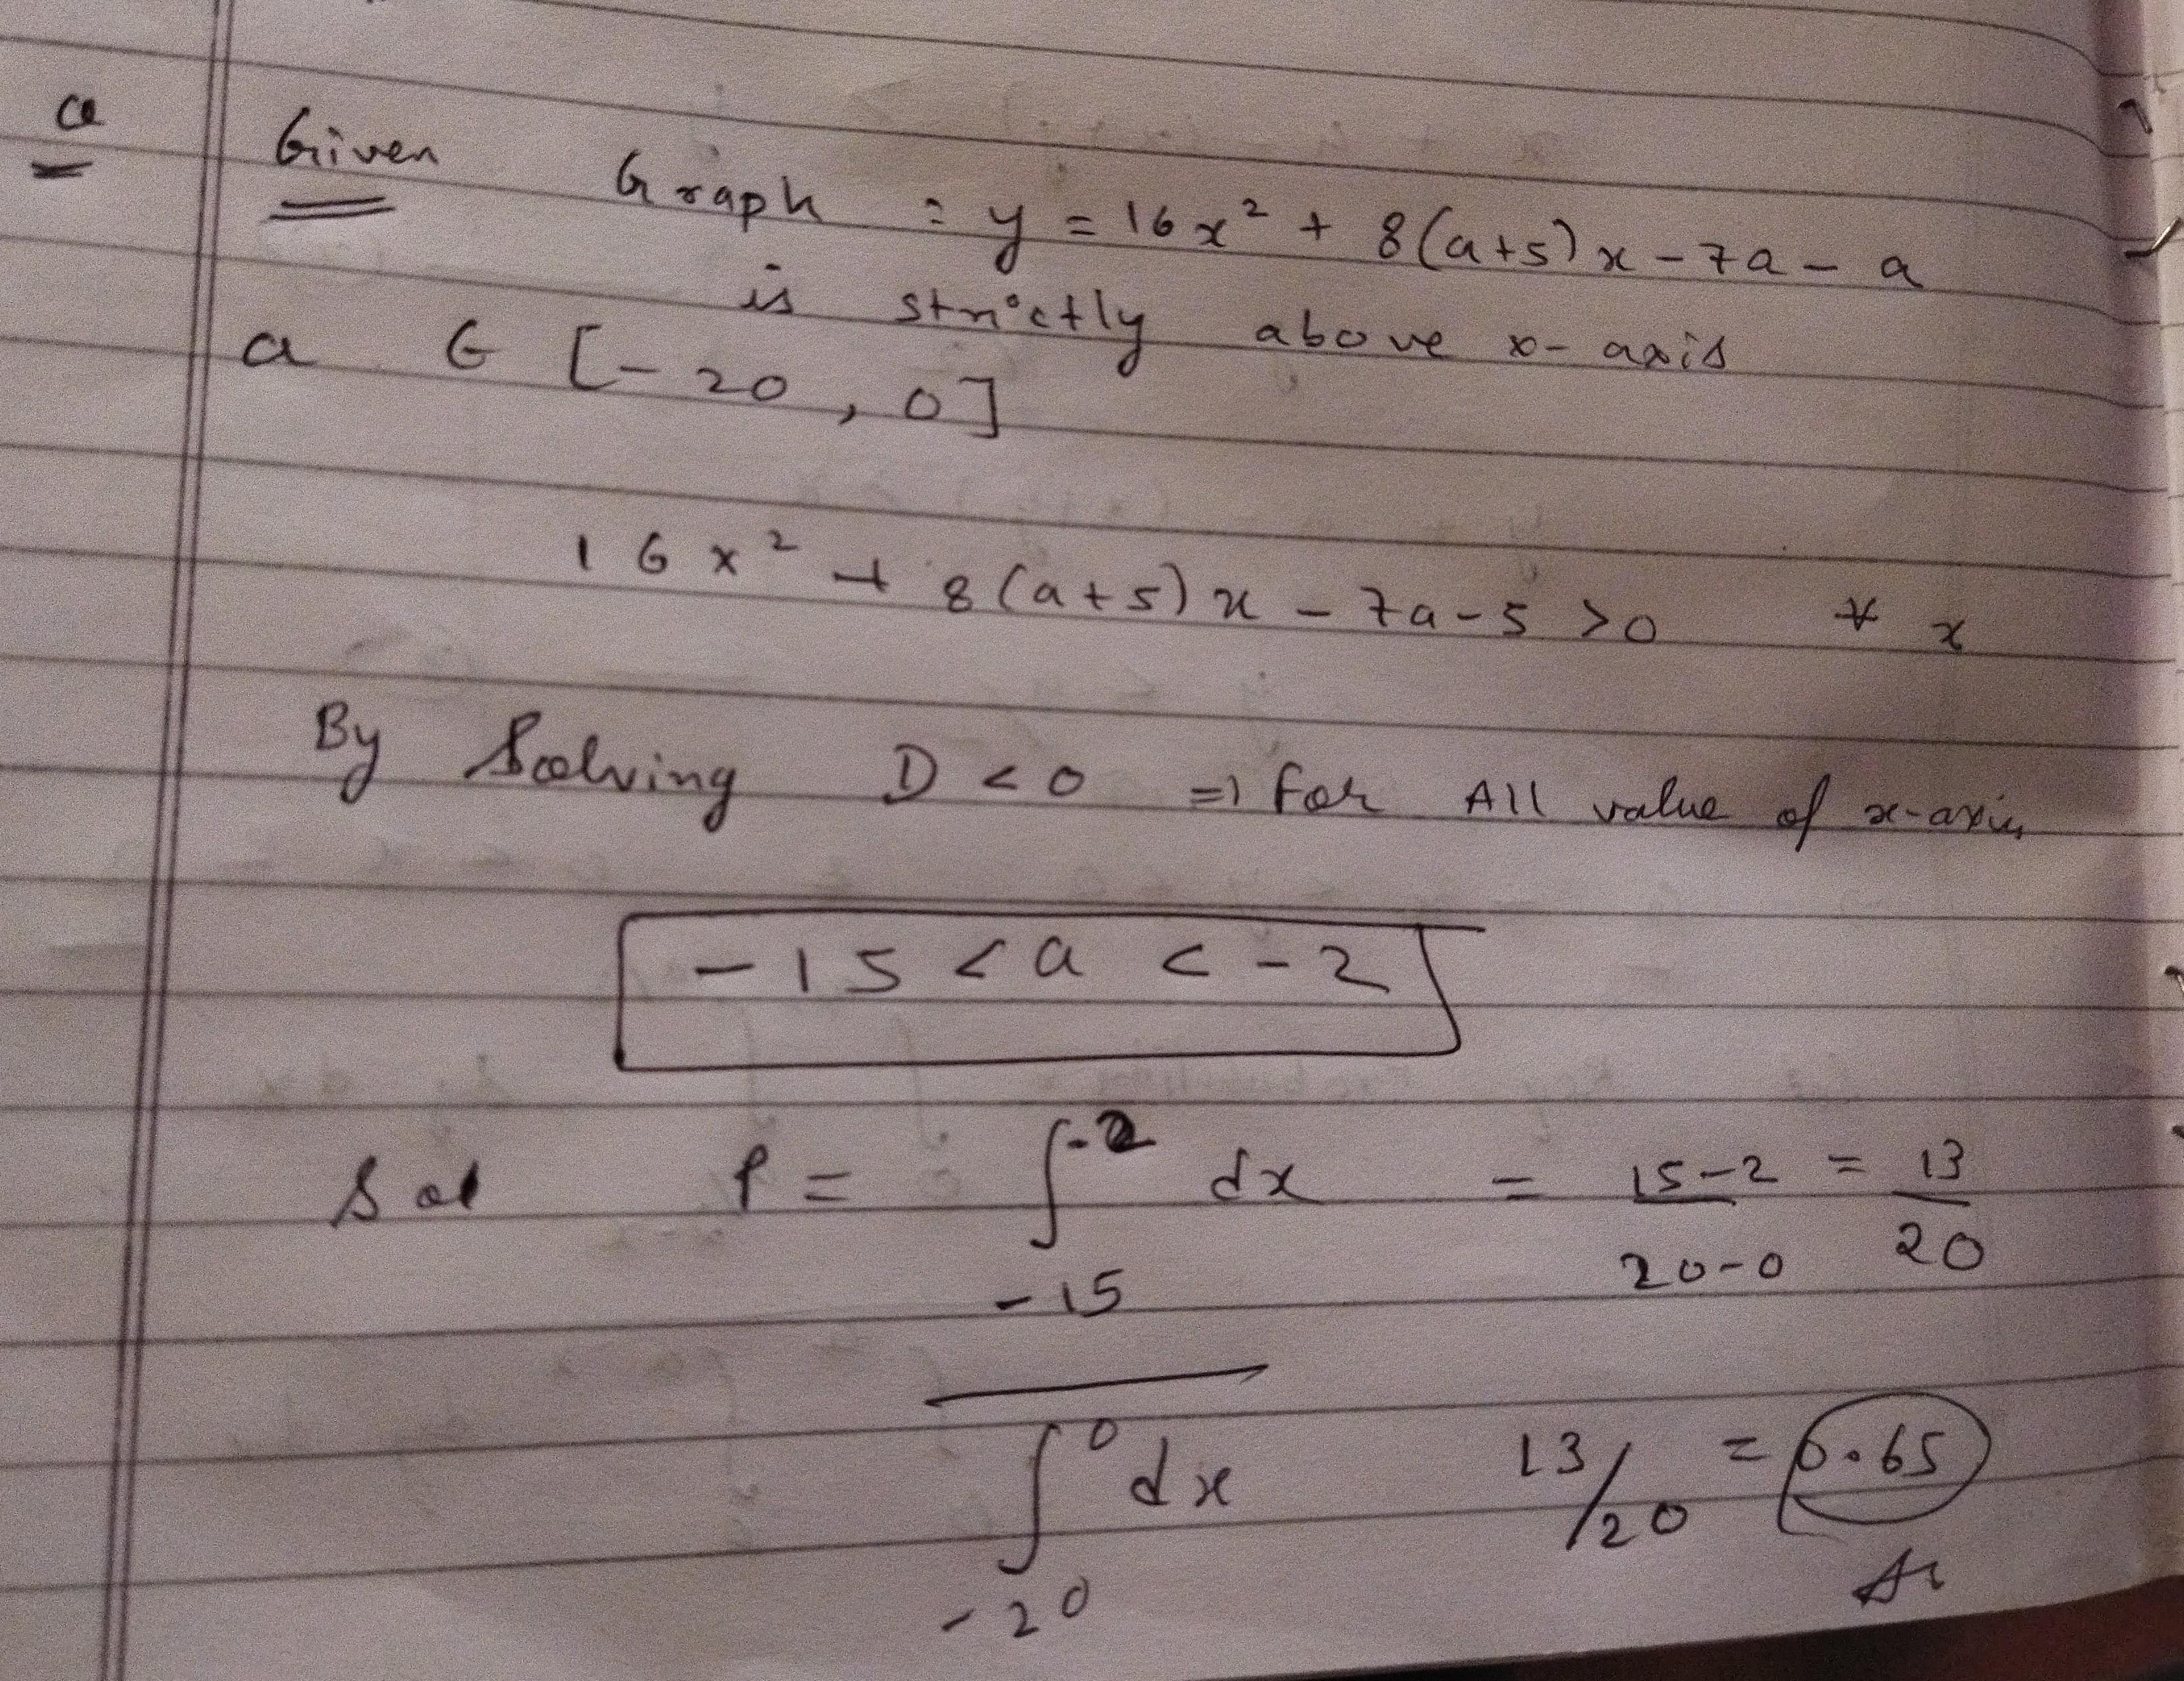 a Given Graph : y = 16x² + 8(a+5)x - 7a - a
is strictly above x-axis
a ∈ [-20, 0]
16x² + 8(a+5)x - 7a - 5 > 0 ∀ x
By Solving D < 0 => for All value of x-axis
-15 < a < -2
Sol P = ∫-2 dx = 15-2 = 13
-15 20-0 20
∫0 dx 13/20 = 0.65
-20